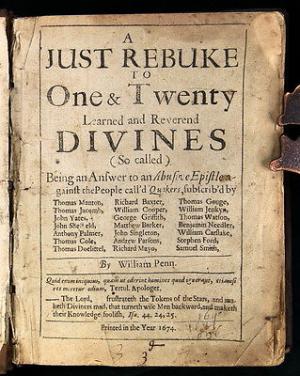 A
JUST REBUKE
TO
One & Twenty
Learned and Reverend
DIVINES
(So called)
Being an Answer to an Abusive Epistle a-
gainst the People call'd Quakers, subscrib'd by
Thomas Manton, Richard Baxter, Thomas Gouge,
Thomas Jacomb, William Cooper, William Jenkyn,
John Yates, George Griffith, Thomas Watson,
John Sheffield, Matthew Barker, Benjamin Needler,
Anthony Palmer, John Singleton, William Carslake,
Thomas Cole, Andrew Parsons, Stephen Ford,
Thomas Doelittel, Richard Mayo, Samuel Smith,
By William Penn.
Quid enim iniquius, quam ut oderint homines quod ignorant, etiamsi
res meretur odium, Tertul. Apologet.
—— The Lord, frustrateth the Tokens of the Stars, and ma-
keth Diviners mad, that turneth wise Men backward, and maketh
their Knowledge foolish, Isa. 44. 24, 25.
Printed in the Year 1674.
3